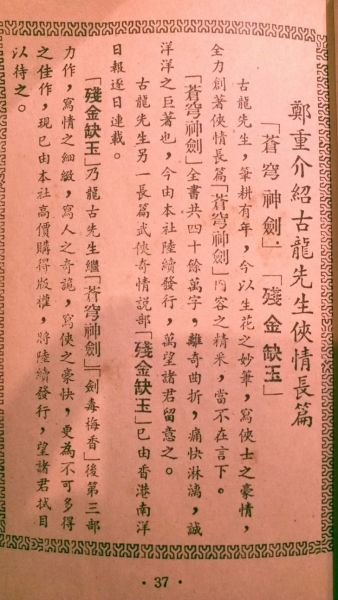 鄭重介紹古龍先生俠情長篇
「蒼穹神劍」「殘金缺玉」
古龍先生，筆耕有年，今以生花之妙筆，寫俠士之豪情，
全力創著俠情長篇「蒼穹神劍」內容之精釆，當不在言下。
「蒼穹神劍」全書共四十餘萬字，離奇曲折，痛快淋漓，誠
洋洋之巨著也，今由本社陸續發行，萬望諸君留意之。
古龍先生另一長篇武俠奇情説部「殘金缺玉」已由香港南洋
日報逐日連載。
「殘金缺玉」乃龍古先生繼「蒼穹神劍」「劍毒梅香」後第三部
力作，寫情之細緻，寫人之奇詭，寫俠之豪快，更為不可多得
之佳作，現已由本社高價購得版權，將陸續發行，望諸君拭目
以待之。
·37·